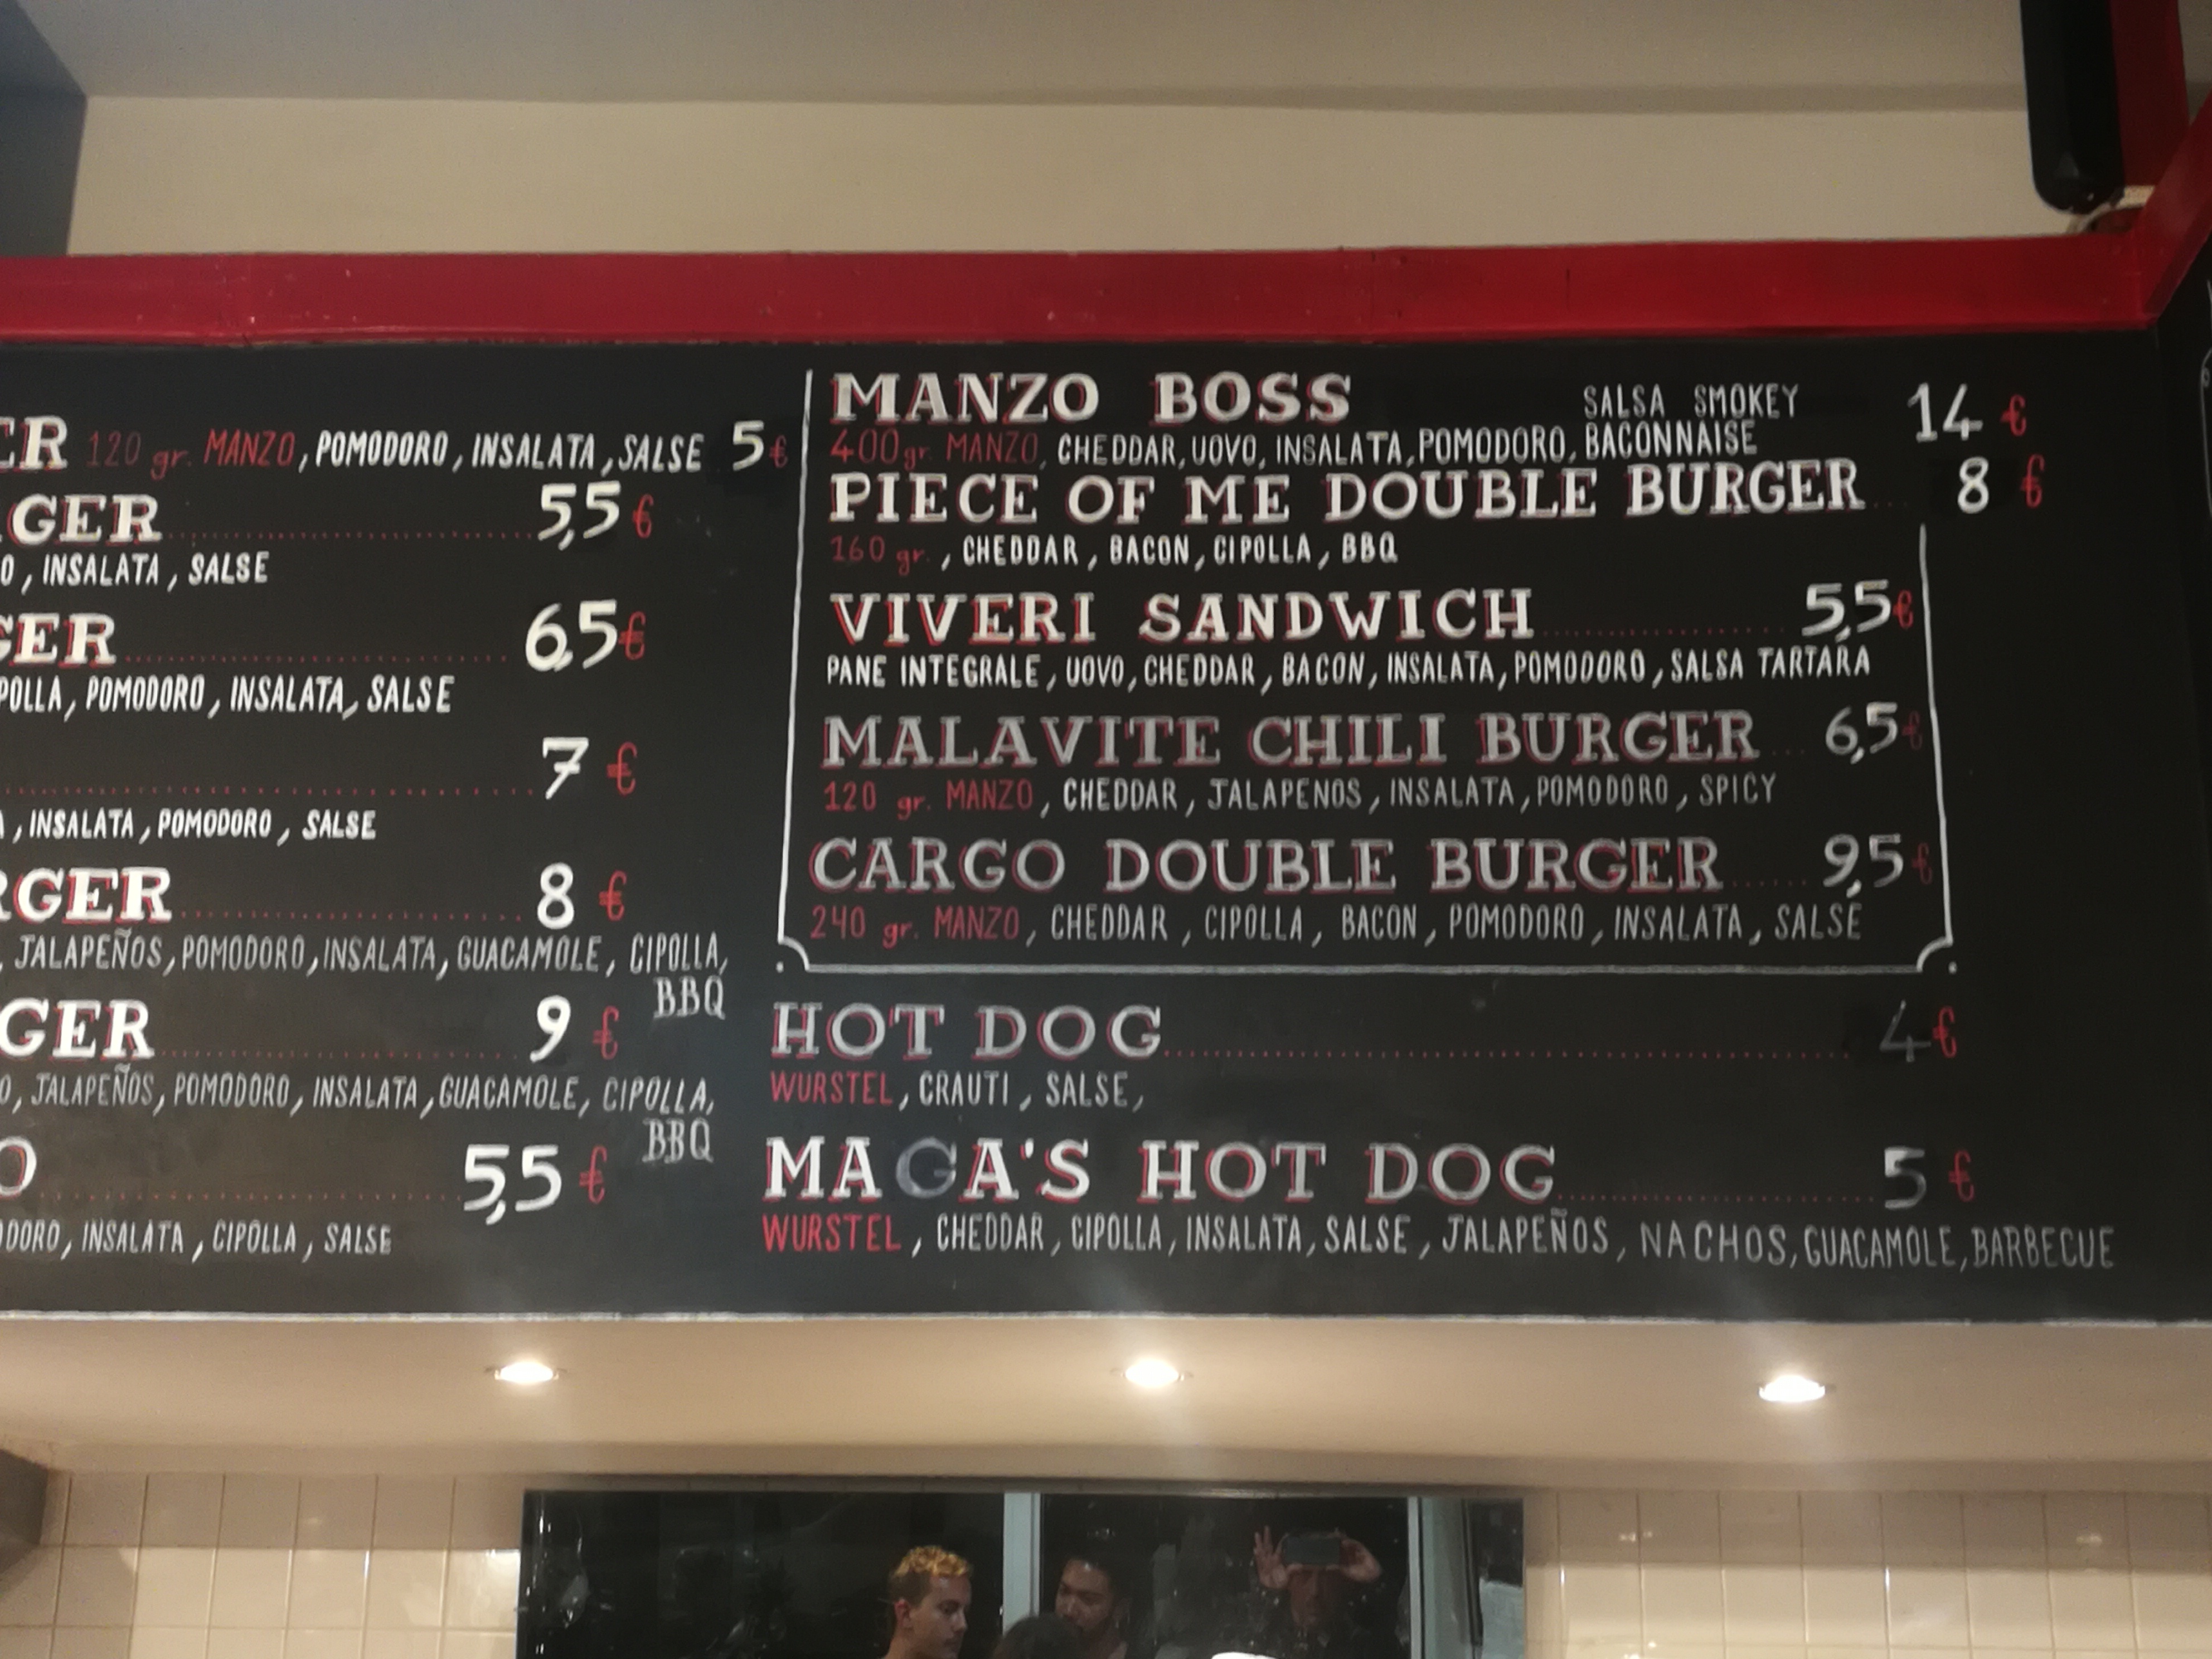 ER 120 gr. MANZO, POMODORO, INSALATA, SALSE 5€
GER 5,5€
O, INSALATA, SALSE
GER 6,5€
POLLA, POMODORO, INSALATA, SALSE
7€
A, INSALATA, POMODORO, SALSE
RGER 8€
, JALAPEÑOS, POMODORO, INSALATA, GUACAMOLE, CIPOLLA,
BBQ
GER 9€
O, JALAPEÑOS, POMODORO, INSALATA, GUACAMOLE, CIPOLLA,
BBQ
O 5,5€
ODORO, INSALATA, CIPOLLA, SALSE
MANZO BOSS SALSA SMOKEY 14€
400gr. MANZO, CHEDDAR, UOVO, INSALATA, POMODORO, BACONNAISE
PIECE OF ME DOUBLE BURGER 8€
160 gr., CHEDDAR, BACON, CIPOLLA, BBQ
VIVERI SANDWICH 5,5€
PANE INTEGRALE, UOVO, CHEDDAR, BACON, INSALATA, POMODORO, SALSA TARTARA
MALAVITE CHILI BURGER 6,5€
120 gr. MANZO, CHEDDAR, JALAPENOS, INSALATA, POMODORO, SPICY
CARGO DOUBLE BURGER 9,5€
240 gr. MANZO, CHEDDAR, CIPOLLA, BACON, POMODORO, INSALATA, SALSE
HOT DOG 4€
WURSTEL, CRAUTI, SALSE,
MAGA'S HOT DOG 5€
WURSTEL, CHEDDAR, CIPOLLA, INSALATA, SALSE, JALAPEÑOS, NACHOS, GUACAMOLE, BARBECUE